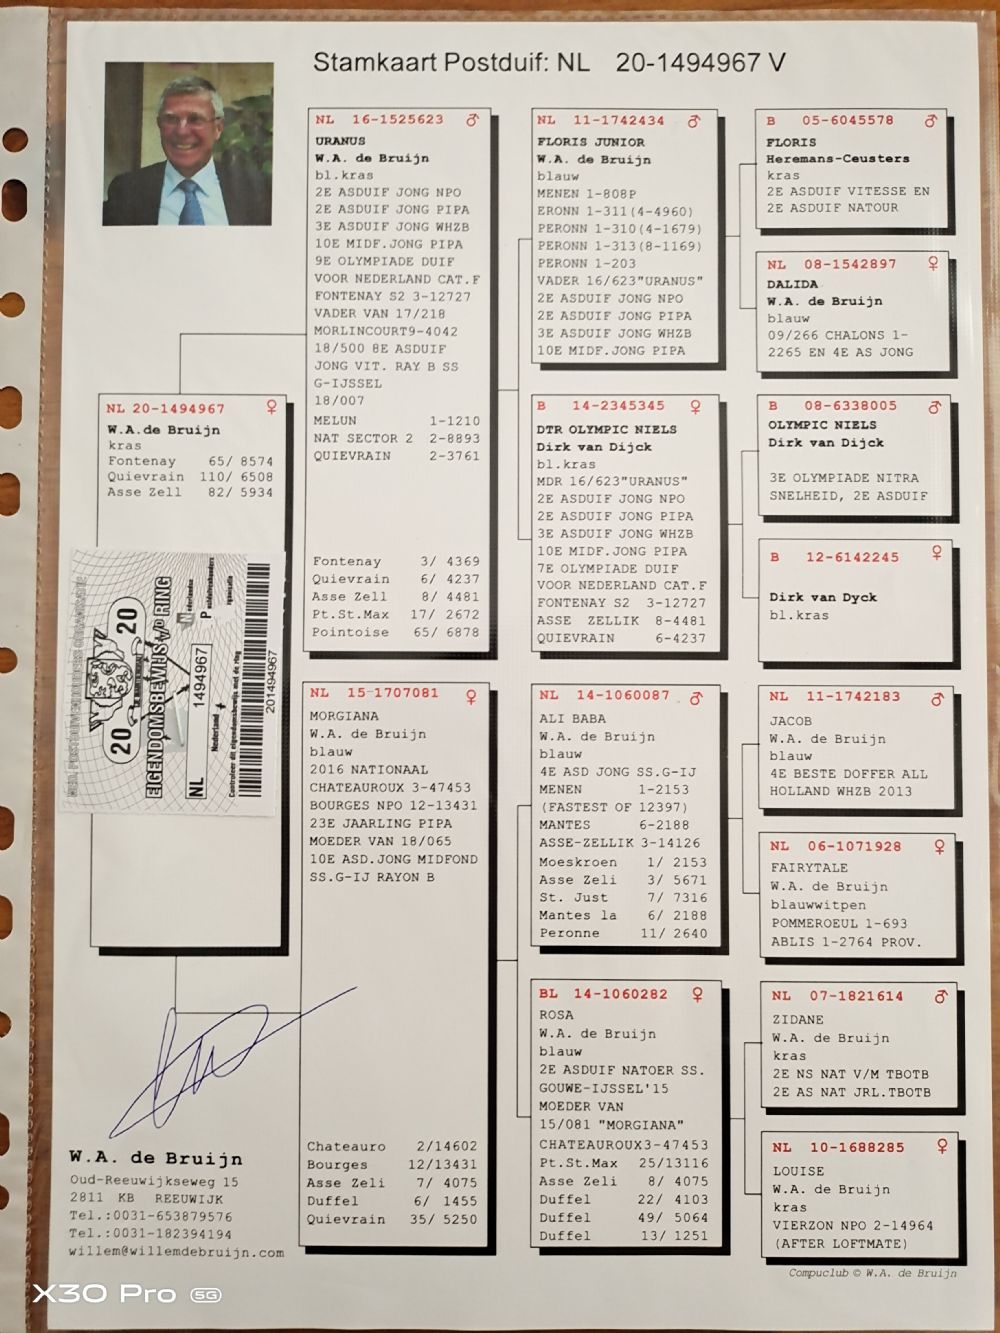 Stamkaart Postduif: NL 20-1494967 V
NL 20-1494967 ♀
W.A.de Bruijn
kras
Fontenay 65/ 8574
Quievrain 110/ 6508
Asse Zell 82/ 5934
20 20
EIGENDOMSBEWIJS V/D RING
NL 1494967
Nederland
Controleer dit eigendomsbewijs met de ring
201494967
NL 16-1525623 ♂
URANUS
W.A. de Bruijn
bl.kras
2E ASDUIF JONG NPO
2E ASDUIF JONG PIPA
3E ASDUIF JONG WHZB
10E MIDF.JONG PIPA
9E OLYMPIADE DUIF
VOOR NEDERLAND CAT.F
FONTENAY S2 3-12727
VADER VAN 17/218
MORLINCOURT9-4042
18/500 8E ASDUIF
JONG VIT. RAY B SS
G-IJSSEL
18/007
MELUN 1-1210
NAT SECTOR 2 2-8893
QUIEVRAIN 2-3761
Fontenay 3/ 4369
Quievrain 6/ 4237
Asse Zell 8/ 4481
Pt.St.Max 17/ 2672
Pointoise 65/ 6878
NL 15-1707081 ♀
MORGIANA
W.A. de Bruijn
blauw
2016 NATIONAAL
CHATEAUROUX 3-47453
BOURGES NPO 12-13431
23E JAARLING PIPA
MOEDER VAN 18/065
10E ASD.JONG MIDFOND
SS.G-IJ RAYON B
Chateauro 2/14602
Bourges 12/13431
Asse Zeli 7/ 4075
Duffel 6/ 1455
Quievrain 35/ 5250
NL 11-1742434 ♂
FLORIS JUNIOR
W.A. de Bruijn
blauw
MENEN 1-808P
ERONN 1-311(4-4960)
PERONN 1-310(4-1679)
PERONN 1-313(8-1169)
PERONN 1-203
VADER 16/623"URANUS"
2E ASDUIF JONG NPO
2E ASDUIF JONG PIPA
3E ASDUIF JONG WHZB
10E MIDF.JONG PIPA
B 14-2345345 ♀
DTR OLYMPIC NIELS
Dirk van Dijck
bl.kras
MDR 16/623"URANUS"
2E ASDUIF JONG NPO
2E ASDUIF JONG PIPA
3E ASDUIF JONG WHZB
10E MIDF.JONG PIPA
7E OLYMPIADE DUIF
VOOR NEDERLAND CAT.F
FONTENAY S2 3-12727
ASSE ZELLIK 8-4481
QUIEVRAIN 6-4237
NL 14-1060087 ♂
ALI BABA
W.A. de Bruijn
blauw
4E ASD JONG SS.G-IJ
MENEN 1-2153
(FASTEST OF 12397)
MANTES 6-2188
ASSE-ZELLIK 3-14126
Moeskroen 1/ 2153
Asse Zeli 3/ 5671
St. Just 7/ 7316
Mantes la 6/ 2188
Peronne 11/ 2640
BL 14-1060282 ♀
ROSA
W.A. de Bruijn
blauw
2E ASDUIF NATOER SS.
GOUWE-IJSSEL'15
MOEDER VAN
15/081 "MORGIANA"
CHATEAUROUX3-47453
Pt.St.Max 25/13116
Asse Zeli 8/ 4075
Duffel 22/ 4103
Duffel 49/ 5064
Duffel 13/ 1251
B 05-6045578 ♂
FLORIS
Heremans-Ceusters
kras
2E ASDUIF VITESSE EN
2E ASDUIF NATOUR
NL 08-1542897 ♀
DALIDA
W.A. de Bruijn
blauw
09/266 CHALONS 1-
2265 EN 4E AS JONG
B 08-6338005 ♂
OLYMPIC NIELS
Dirk van Dijck
3E OLYMPIADE NITRA
SNELHEID, 2E ASDUIF
B 12-6142245 ♀
Dirk van Dyck
bl.kras
NL 11-1742183 ♂
JACOB
W.A. de Bruijn
blauw
4E BESTE DOFFER ALL
HOLLAND WHZB 2013
NL 06-1071928 ♀
FAIRYTALE
W.A. de Bruijn
blauwwitpen
POMMEROEUL 1-693
ABLIS 1-2764 PROV.
NL 07-1821614 ♂
ZIDANE
W.A. de Bruijn
kras
2E NS NAT V/M TBOTB
2E AS NAT JRL.TBOTB
NL 10-1688285 ♀
LOUISE
W.A. de Bruijn
kras
VIERZON NPO 2-14964
(AFTER LOFTMATE)
W.A. de Bruijn
Oud-Reeuwijkseweg 15
2811 KB REEUWIJK
Tel.:0031-653879576
Tel.:0031-182394194
willem@willemdebruijn.com
Compuclub © W.A. de Bruijn
X30 Pro 5G